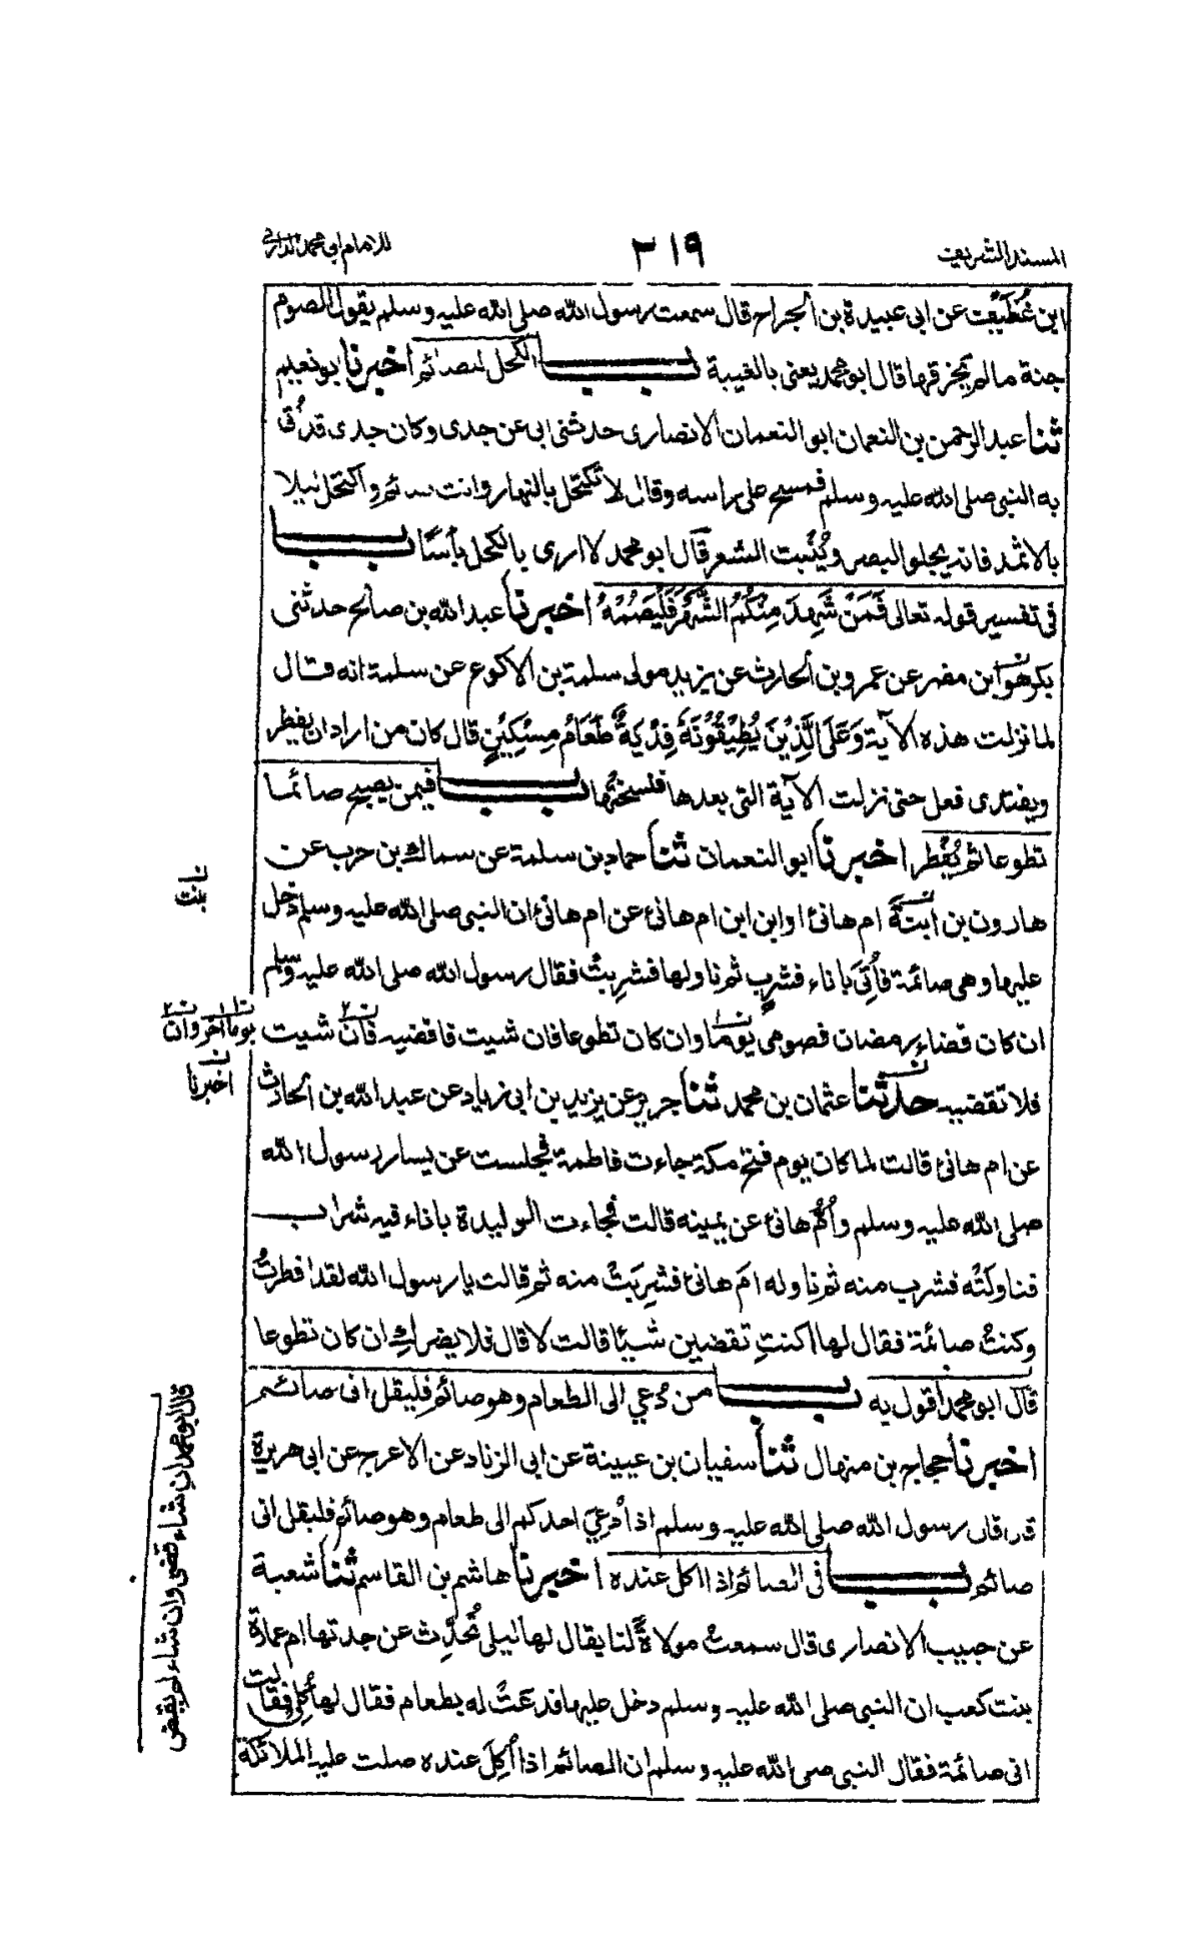 المسند الشريف ٣١٩ للامام ابى محمد الدارمى
ابن غُطَيف عن ابى عبيدة بن الجراح قال سمعت رسول الله صلى الله عليه وسلم يقول الصوم
جنة مالم يخرقها قال ابو محمد يعنى بالغيبة باب الكحل للصائم اخبرنا ابو نعيم
ثنا عبد الرحمن بن النعمان ابو النعمان الانصارى حدثنى ابى عن جدى وكان جدى قد أتى
به النبى صلى الله عليه وسلم فمسح على راسه وقال لا تكتحل بالنهار وانت صائم واكتحل ليلا
بالاثمد فانه يجلو البصر ويُنبت الشعر قال ابو محمد لا ارى بالكحل بأسًا باب
فى تفسير قوله تعالى فَمَنْ شَهِدَ مِنْكُمُ الشَّهْرَ فَلْيَصُمْهُ اخبرنا عبد الله بن صالح حدثنى
بكر هو ابن مضر عن عمرو بن الحارث عن يزيد مولى سلمة بن الاكوع عن سلمة انه قال
لما نزلت هذه الآية وَعَلَى الَّذِيْنَ يُطِيْقُوْنَهٗ فِدْيَةٌ طَعَامُ مِسْكِيْنٍ قال كان من اراد ان يفطر
ويفتدى فعل حتى نزلت الآية التى بعدها فنسختها باب فيمن يصبح صائما
تطوعا ثم يُفطر اخبرنا ابو النعمان ثنا حماد بن سلمة عن سماك بن حرب عن
هارون بن ابنة ام هانئ او ابن ابن ام هانئ عن ام هانئ ان النبى صلى الله عليه وسلم دخل
ن بنت
عليها وهى صائمة فأُتِىَ باناء فشرب ثم ناولها فشربتُ فقال رسول الله صلى الله عليه وسلم
ان كان قضاء رمضان فصومى يوما وان كان تطوعا فان شيت فاقضيه فان شيت
يوما اخر وان
فلا تقضيه حدثنا عثمان بن محمد ثنا جرير عن يزيد بن ابى زياد عن عبد الله بن الحارث
ن اخبرنا
عن ام هانئ قالت لما كان يوم فتح مكة جاءت فاطمة فجلست عن يسار رسول الله
صلى الله عليه وسلم وأُمُّ هانئ عن يمينه قالت فجاءت الوليدة باناء فيه شراب
فناولَتْه فشرب منه ثم ناوله امَ هانئ فشرِبَتْ منه ثم قالت يا رسول الله لقد افطرتُ
وكنتُ صائمة فقال لها اكنتِ تقضين شيئا قالت لا قال فلا يضرك ان كان تطوعا
قال ابو محمد اقول به باب من دُعي الى الطعام وهو صائم فليقل انى صائم
اخبرنا حجاج بن منهال ثنا سفيان بن عيينة عن ابى الزناد عن الاعرج عن ابى هريرة
قال قال رسول الله صلى الله عليه وسلم اذا دُعِيَ احدكم الى طعام وهو صائم فليقل انى
صائم باب فى الصائم اذا اكل عنده اخبرنا هاشم بن القاسم ثنا شعبة
عن حبيب الانصارى قال سمعتُ مولاةً لنا يقال لها ليلى تُحدِّث عن جدتها ام عمارة
بنت كعب ان النبى صلى الله عليه وسلم دخل عليها فدعَتْ له بطعام فقال لها كُلى فقالت
انى صائمة فقال النبى صلى الله عليه وسلم ان الصائم اذا أُكِلَ عنده صلت عليه الملائكة
قال ابو محمد ان شاء قضى وان شاء لم يقض